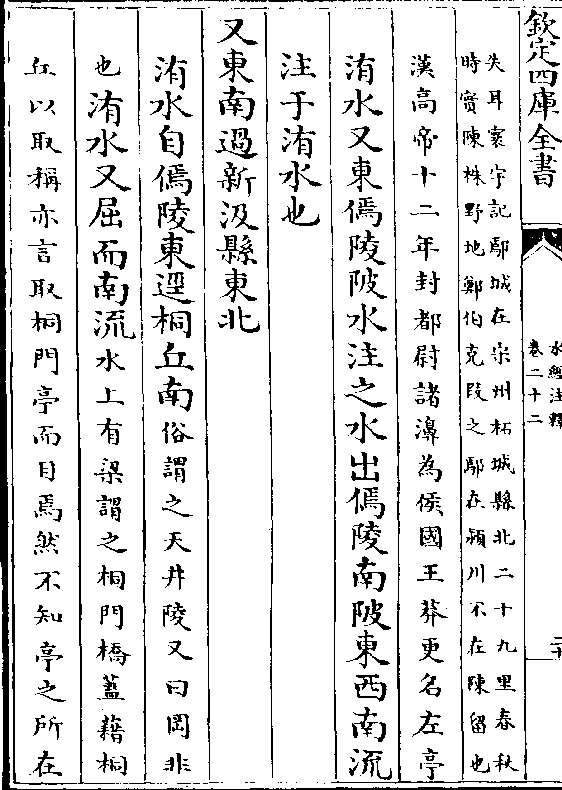 欽定四庫全書
水經注釋
卷二十二
失耳寰宇記鄢城在宋州柘城縣北二十九里春秋
時實陳株野地鄭伯克段之鄢在潁川不在陳留也
漢高帝十二年封都尉諸濞為侯國王莽更名左亭
洧水又東傿陵陂水注之水出傿陵南陂東西南流
注于洧水也
又東南過新汲縣東北
洧水自傿陵東逕桐丘南俗謂之天井陵又曰岡非
也洧水又屈而南流水上有梁謂之桐門橋蓋藉桐
丘以取稱亦言取桐門亭而目焉然不知亭之所在